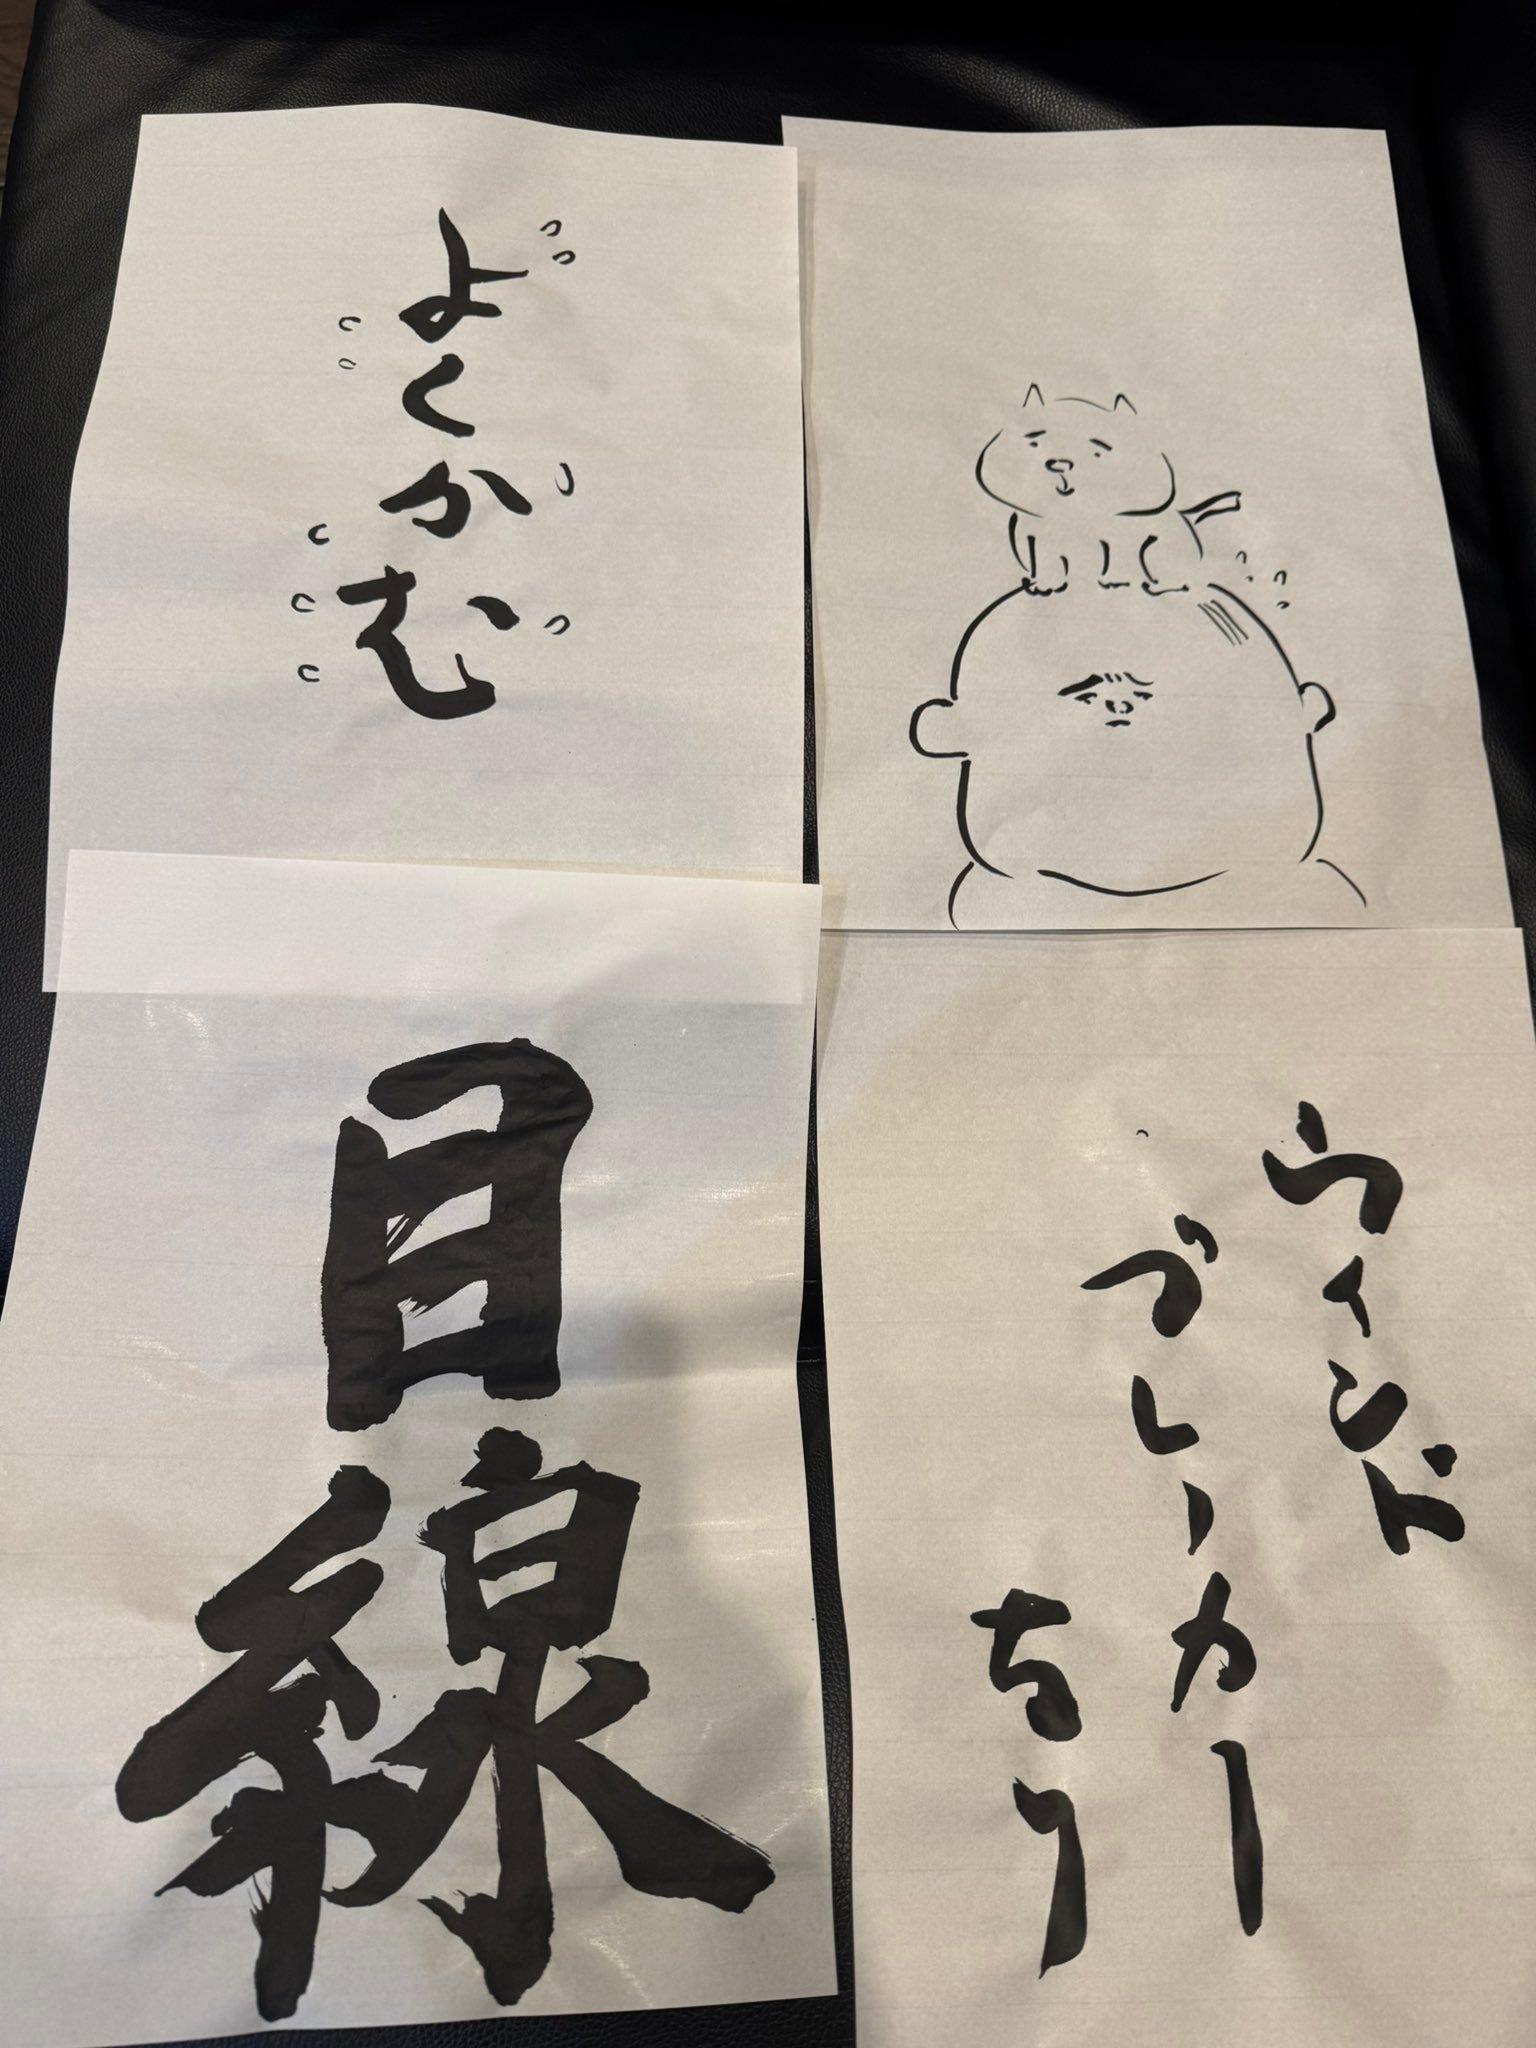 よくかむ
目線
ウィンド
ブレーカー